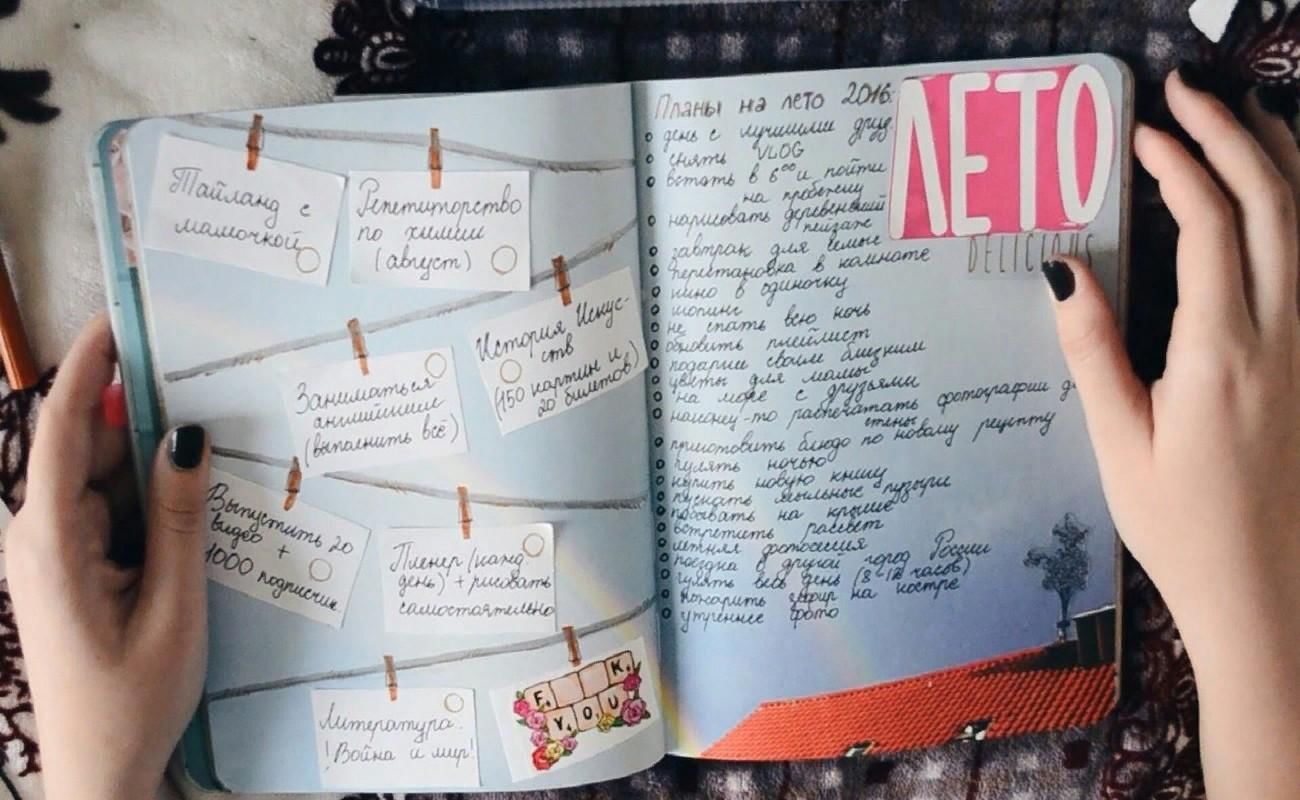 Тайланд с
мамочкой
Репетиторство
по химии
(август)
Заниматься
английским
(выполнить всё)
История Искус-
ств
(150 картин и
20 билетов)
Выпустить 20
видео +
1000 подписчик.
Пленер (кажд.
день) + рисовать
самостоятельно
Литература.
!Война и мир!
F. K.
YOU
Планы на лето 2016:
ЛЕТО
DELICIOUS
день с лучшими друз.
снять VLOG
встать в 6⁰⁰ и пойти
на пробежку
нарисовать деревенский
пейзаж
завтрак для семьи
перестановка в комнате
кино в одиночку
шопинг
не спать всю ночь
обновить плейлист
подарки своим близким
цветы для мамы
на море с друзьями
наконец-то распечатать фотографии д
стены
приготовить блюдо по новому рецепту
гулять ночью
купить новую книгу
пускать мыльные пузыри
побывать на крыше
встретить рассвет
летняя фотосессия
поездка в другой город России
гулять весь день (8-12 часов)
пожарить зефир на костре
утреннее фото